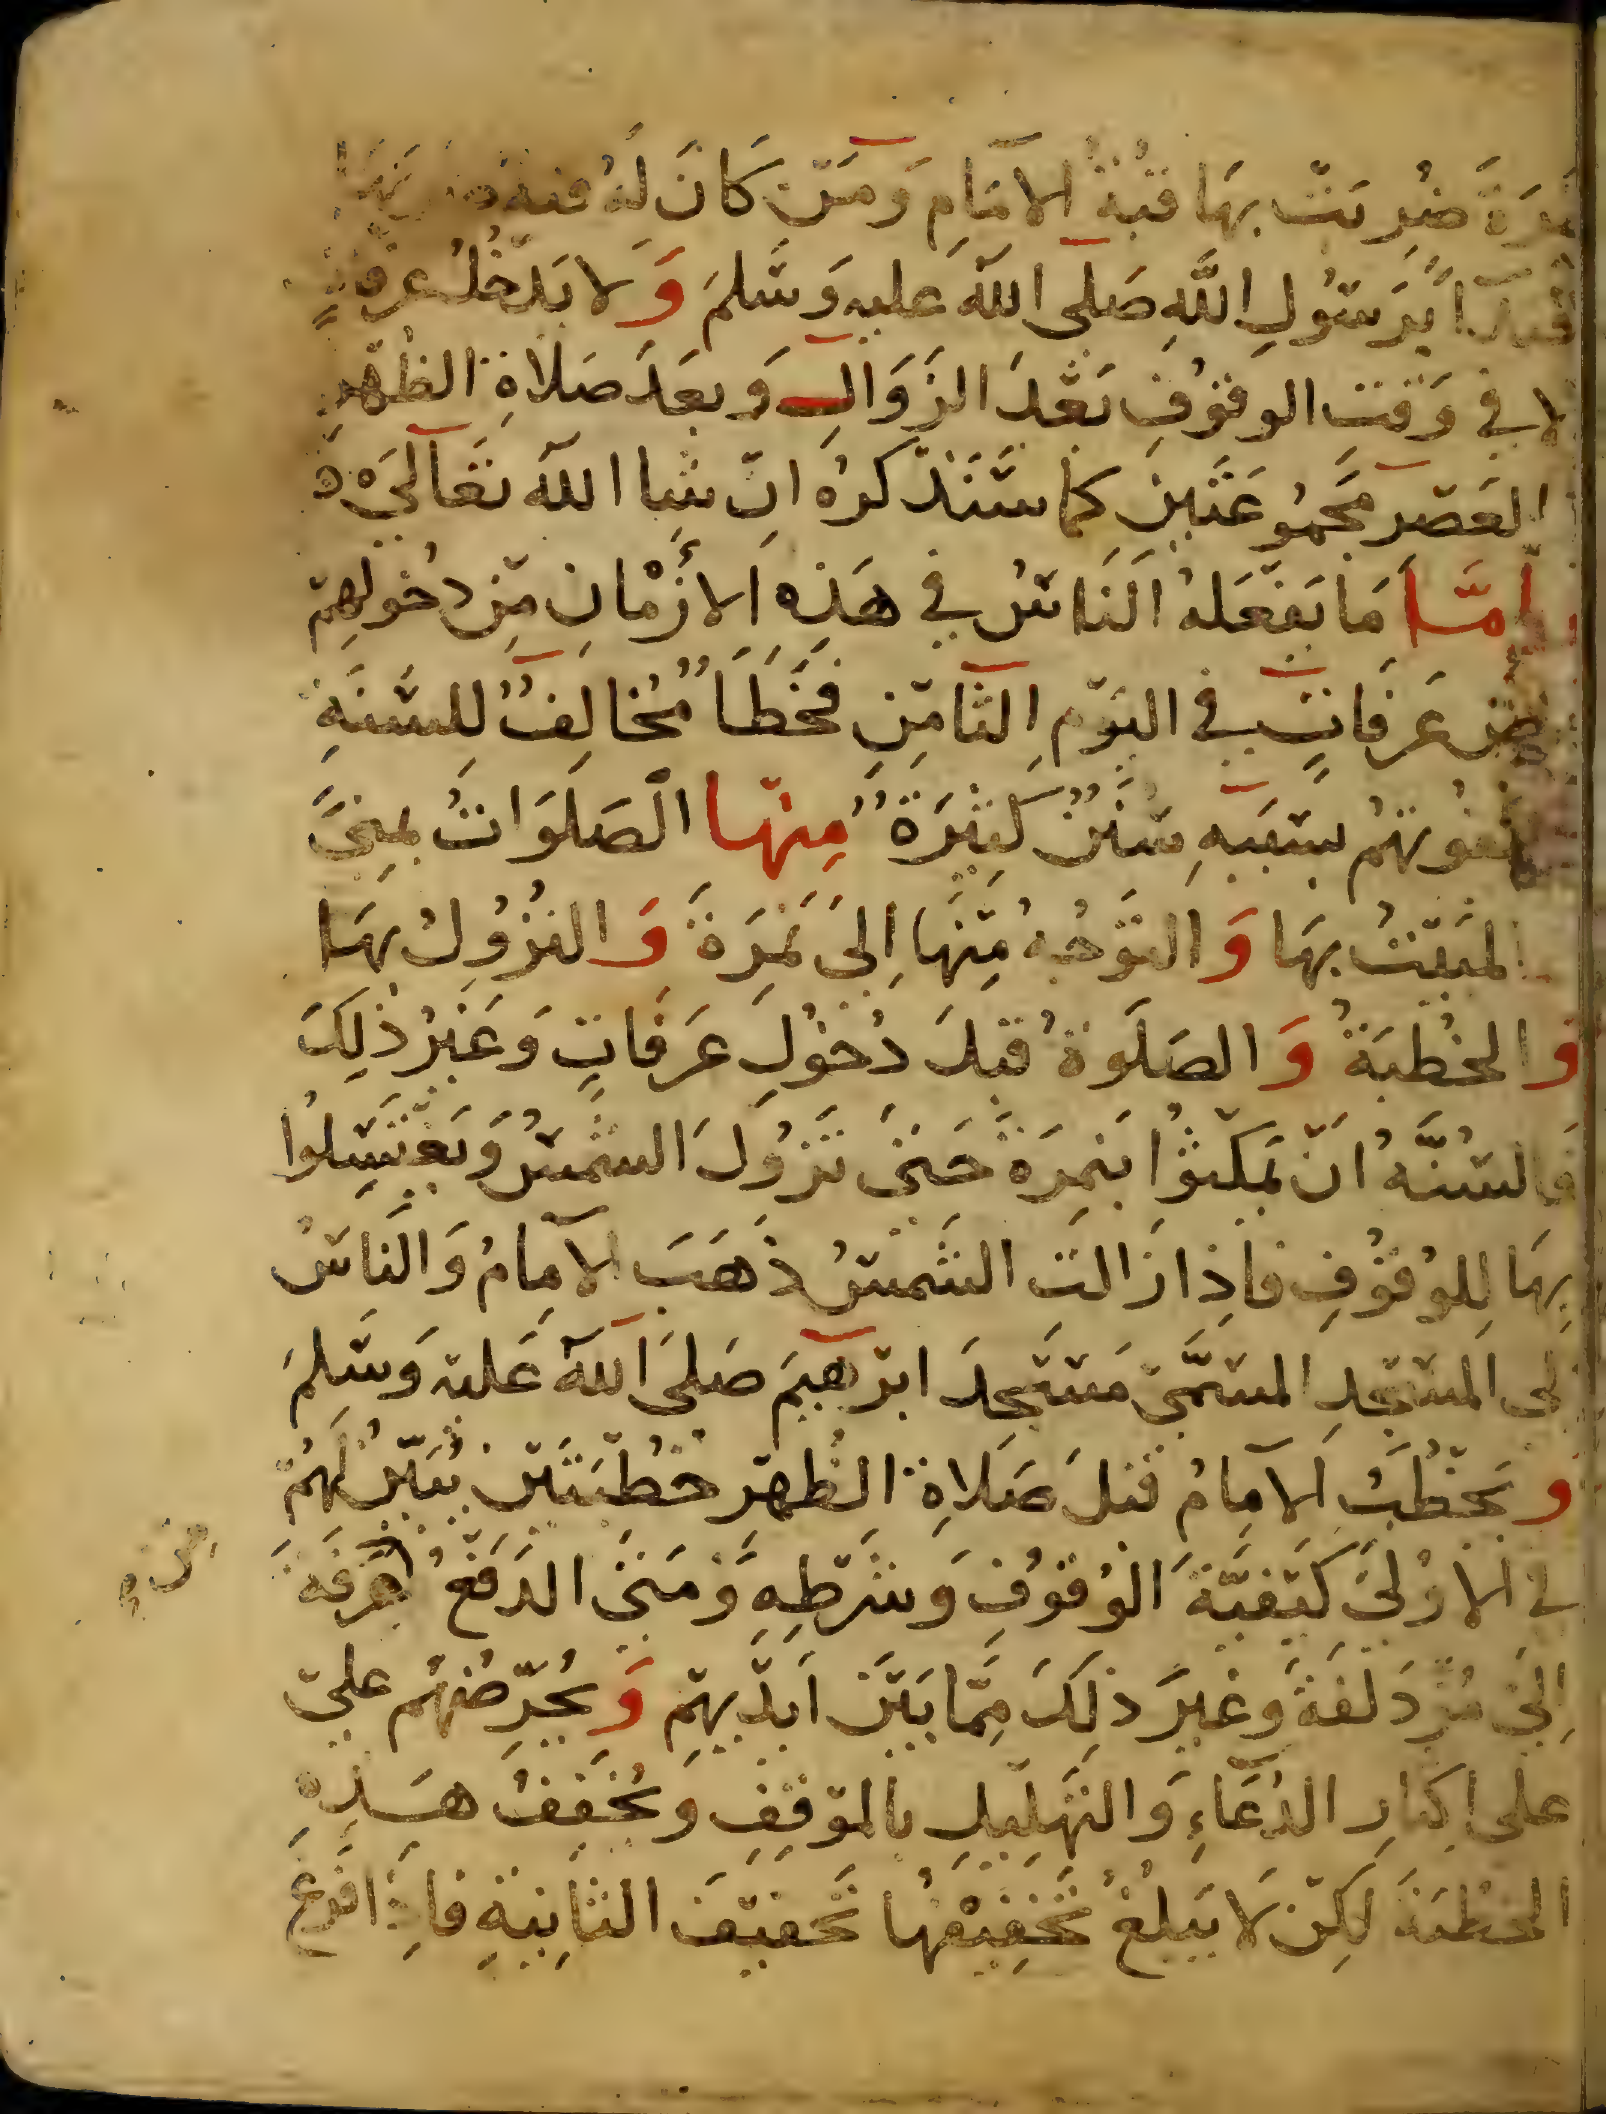 نَمِرَةَ ضُرِبَتْ بِهَا قُبَّةُ الإمَامِ وَمَنْ كَانَ لَهُ قبة ضربها
اقتداءً بِرَسُولِ اللَّهِ صَلَّى اللَّه عَلَيه وَسَّلَمَ وَلا يَدْخُلُ عرفاتٍ
إلا في وَقتِ الوقوُفِ بَعْدَ الزَوَالِ وَبعَدَ صَلاَةِ الظُهْرِ
العَصْرِ مَجمُوعَتَينِ كمَا سَنَذْكرُهُ انْ شَا اللَّه تَعَالَىْ ه
وأمَّا مَا يَفعَلهُ النَاسُ في هَذِهِ الأزْمَانِ مِن دُخولِهِمْ
أرض عَرفَاتٍ في اليَوْمِ الثَامِن فَخَطَأٌ مُخَالِفٌ لِلسُنَةِ
يَفُوتهُمْ بسَبَبهِ سُنَنٌ كثِيَرةٌ مِنها الصَلَوَاتُ بمِنىً
والمَبيْتُ بهَا وَالتَوَجُهُ مِنْهَا اِلىَ نَمِرَةَ وَالنزُولُ بهَا
وَالخُطبَةُ وَالصَلَوةُ قَبلَ دُخوُلِ عَرَفَاتٍ وَغَيْرُ ذلِكَ
فَالسُنَّهُ انْ يَمكُثوُا بنَمِرَةَ حَتىَ تَزوُلَ الشَمْسُ وَيَغتَسِلوُا
بِهَا لِلوُقوُفِ فاِذَا زَالتِ الشَمسُ ذَهَبَ الإمَامُ وَالنَاسُ
اِلى المَسْجدِ المسَمَّى مَسْجِدَ ابرْهِيمَ صَلىَ اللَّه عَليهْ وَسَلمَ
وَيَخْطُبُ الإمَامُ قبْلَ صَلاةِ الظُهْرِ خطْبَتَيْن يُبَيّنُ لهَمُْ
في الأوْلىَ كَيْفيَّةَ الوُقوُفِ وَشَرْطِهِ وَمَتىَ الدَفعُ عَرَفَةَ
اِلىَ مُزْدَلفَةَ وَغيرَ ذلِكَ مِمَّا بَيْنَ أيدْيهِمْ وَيُحَرِّضُهُم عَلىَ
على اِكثارِ الدُعَاءِ وَالتَهلِيلِ بالموْقِفِ وَيُخَفِفُ هَذِهِ
الخُطبَةَ لَكِنْ لاَ يَبلُغُ تَخْفِيفهُا تخَفيْفَ الثَانِيةِ فاِذَا فَرَغَ
مِن صح